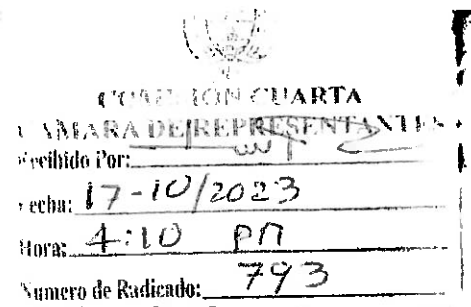 COMISIÓN CUARTA
CÁMARA DE REPRESENTANTES
Recibido Por:
Fecha: 17-10/2023
Hora: 4:10 PM
Numero de Radicado: 793